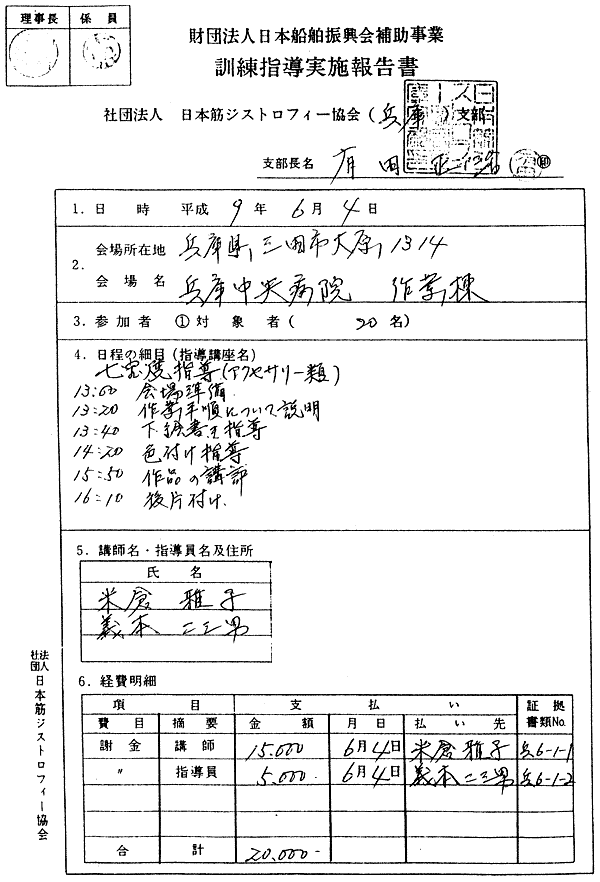 理事長 係員
財団法人日本船舶振興会補助事業
訓練指導実施報告書
社団法人 日本筋ジストロフィー協会(兵庫)支部
支部長名 有田
1.日 時 平成 9年 6月4日
2. 会場所在地 兵庫県,三田市大原,1314
会場名 兵庫中央病院 作業棟
3.参加者 ①対象者( 20名)
4.日程の細目(指導講座名)
七宝焼指導(アクセサリー類)
13:00 会場準備
13:20 作業手順について説明
13:40 下絵書き指導
14:20 色付け指導
15:50 作品の講評
16:10 後片付け.
5.講師名・指導員名及住所
氏名
米倉 雅子
義本 二三男
6.経費明細
項目 支払い 証拠書類No.
費目 摘要 金額 月日 払い先
謝金 講師 15.000 6月4日 米倉 雅子 兵6-1-1
〃 指導員 5.000 6月4日 義本 二三男 兵6-1-2
合計 20.000-
社団法人日本筋ジストロフィー協会